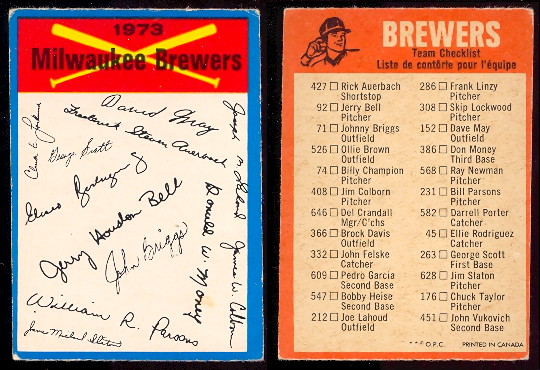 1973
Milwaukee Brewers
David May
Frederick Steven Auerbach
George Scott
Jerry Houston Bell
John Briggs
Donald W. Money
William R. Parsons
BREWERS
Team Checklist
Liste de contôrle pour l'équipe
427 □ Rick Auerbach
Shortstop
92 □ Jerry Bell
Pitcher
71 □ Johnny Briggs
Outfield
526 □ Ollie Brown
Outfield
74 □ Billy Champion
Pitcher
408 □ Jim Colborn
Pitcher
646 □ Del Crandall
Mgr/C'chs
366 □ Brock Davis
Outfield
332 □ John Felske
Catcher
609 □ Pedro Garcia
Second Base
547 □ Bobby Heise
Second Base
212 □ Joe Lahoud
Outfield
286 □ Frank Linzy
Pitcher
308 □ Skip Lockwood
Pitcher
152 □ Dave May
Outfield
386 □ Don Money
Third Base
568 □ Ray Newman
Pitcher
231 □ Bill Parsons
Pitcher
582 □ Darrell Porter
Catcher
45 □ Ellie Rodriguez
Catcher
263 □ George Scott
First Base
628 □ Jim Slaton
Pitcher
176 □ Chuck Taylor
Pitcher
451 □ John Vukovich
Second Base
* * © O.P.C.
PRINTED IN CANADA